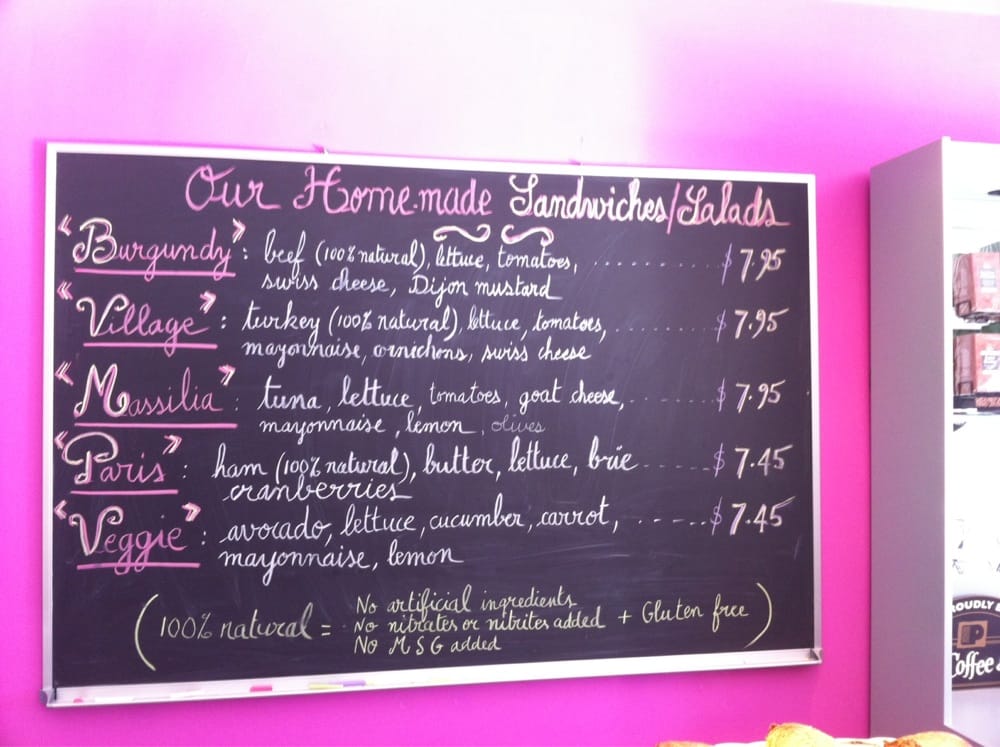 Our Home-made Sandwiches/Salads
"Burgundy": beef (100% natural), lettuce, tomatoes, .......... $ 7.95
swiss cheese, Dijon mustard
"Village": turkey (100% natural), lettuce, tomatoes, ........ $ 7.95
mayonnaise, cornichons, swiss cheese
"Massilia": tuna, lettuce, tomatoes, goat cheese, ....... $ 7.95
mayonnaise, lemon, olives
"Paris": ham (100% natural), butter, lettuce, brie ....... $ 7.45
cranberries
"Veggie": avocado, lettuce, cucumber, carrot, ....... $ 7.45
mayonnaise, lemon
(100% natural = No artificial ingredients
No nitrates or nitrites added + Gluten free)
No MSG added
Coffee &